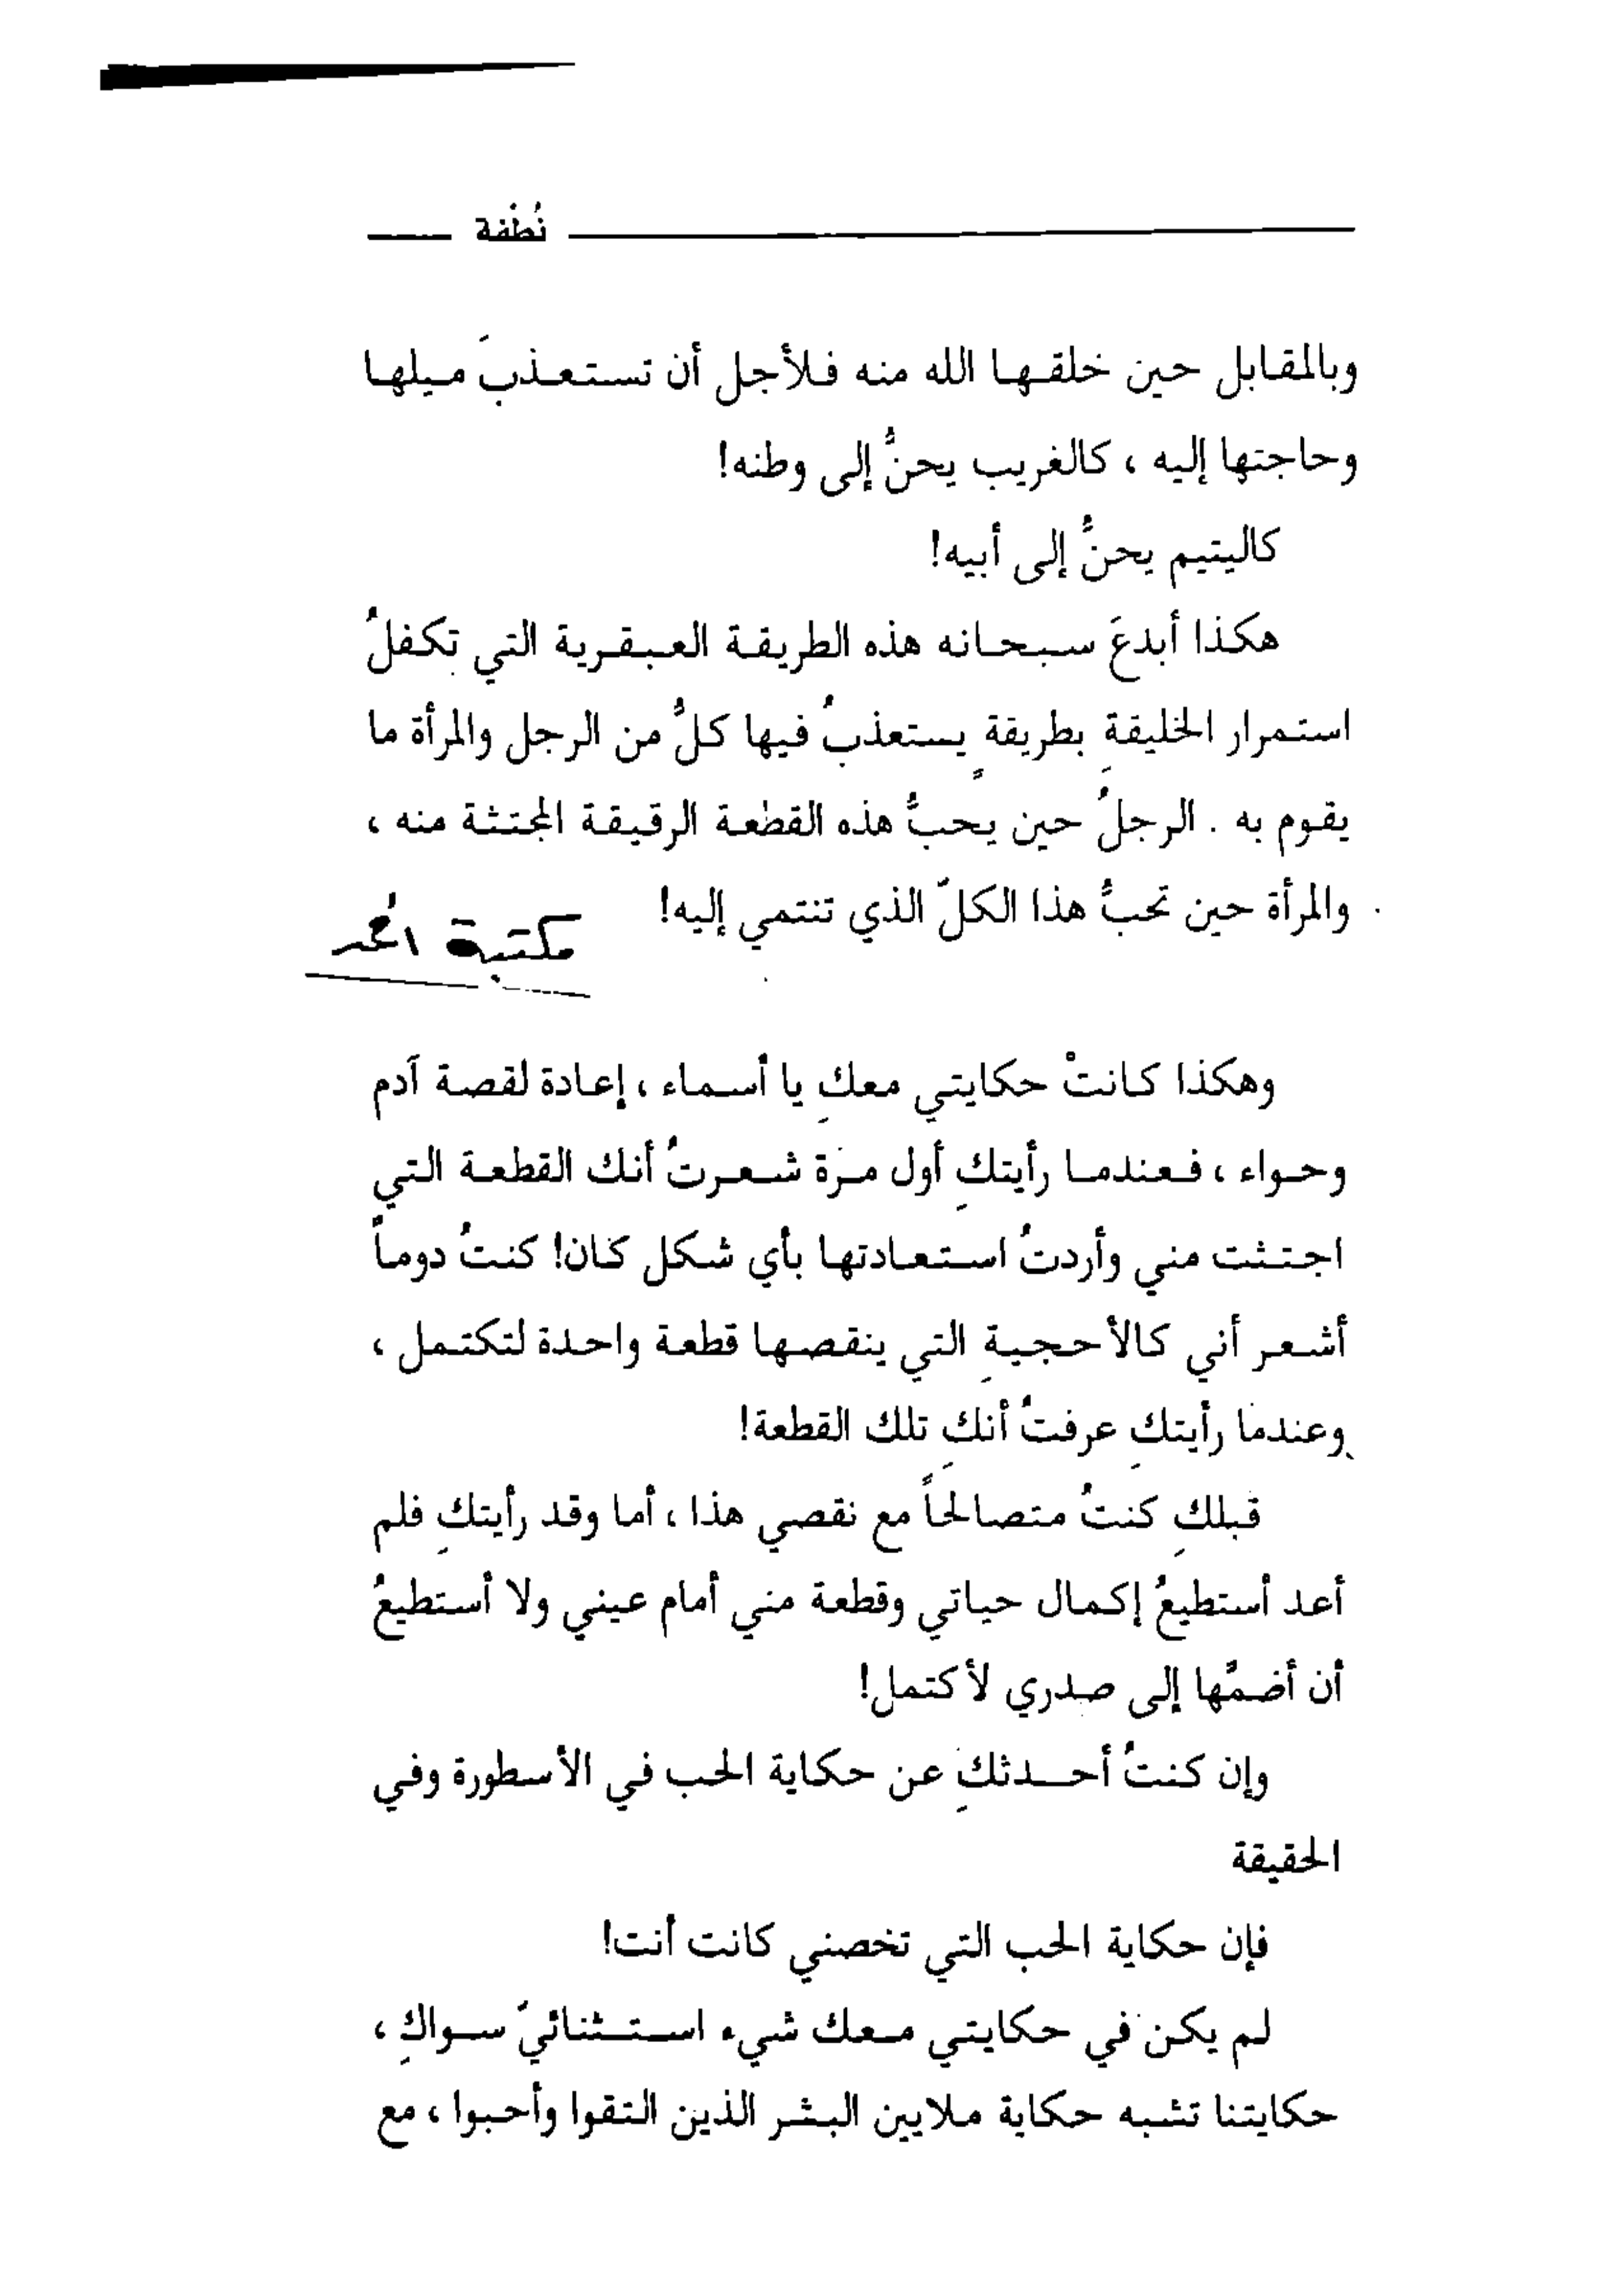 نُطْفة
وبالمقابل حين خلقها الله منه فلأجل أن تستعذبَ ميلها
وحاجتها إليه ، كالغريب يحنُّ إلى وطنه!
كاليتيم يحنُّ إلى أبيه!
هكذا أبدعَ سبحانه هذه الطريقة العبقرية التي تكفلُ
استمرار الخليقةِ بطريقةٍ يستعذبُ فيها كلُّ من الرجل والمرأة ما
يقوم به . الرجلُ حين يحبُّ هذه القطعة الرقيقة المجتثة منه ،
والمرأة حين تحبُّ هذا الكلّ الذي تنتمي إليه!
مكتبة
وهكذا كانتْ حكايتي معكِ يا أسماء ، إعادة لقصة آدم
وحواء ، فعندما رأيتكِ أول مرّة شعرتُ أنك القطعة التي
اجتثت مني وأردتُ استعادتها بأي شكل كان! كنتُ دوماً
أشعر أني كالأحجيةِ التي ينقصها قطعة واحدة لتكتمل ،
وعندما رأيتكِ عرفتُ أنكِ تلك القطعة!
قبلكِ كنتُ متصالحاً مع نقصي هذا ، أما وقد رأيتكِ فلم
أعد أستطيعُ إكمال حياتي وقطعة مني أمام عيني ولا أستطيعُ
أن أضمَّها إلى صدري لأكتمل!
وإن كنتُ أحدثكِ عن حكاية الحب في الأسطورة وفي
الحقيقة
فإن حكاية الحب التي تخصني كانت أنت!
لم يكن في حكايتي معك شيء استثنائيّ سواكِ ،
حكايتنا تشبه حكاية ملايين البشر الذين التقوا وأحبوا ، مع